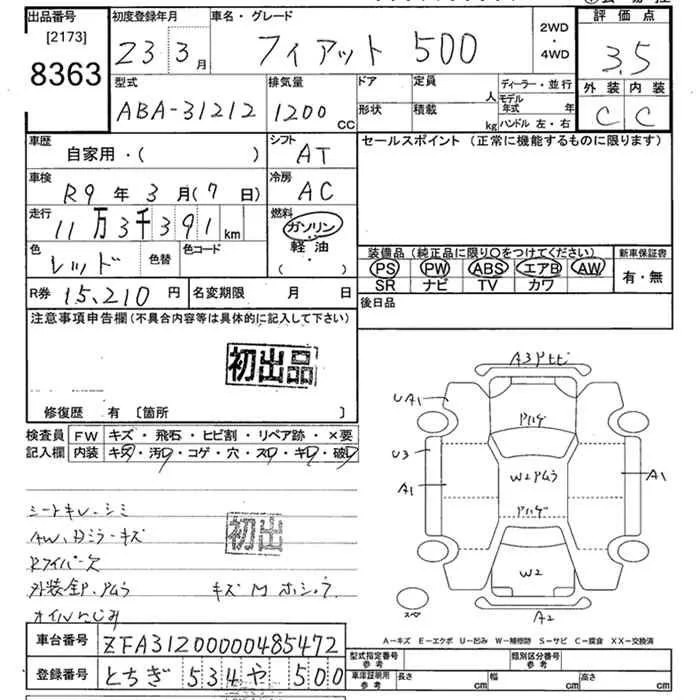 出品番号 初度登録年月 車名・グレード 評価点
[2173] 23 3月 フィアット 500 2WD・4WD 3.5
8363
型式 排気量 ドア 定員 ディーラー・並行 外装 内装
ABA-31212 1200 CC 形状 積載 人 kg モデル年式 年 ハンドル 左・右 C C
車歴 シフト セールスポイント (正常に機能するものに限ります)
自家用・( ) AT
車検 冷房
R9年3月(7日) AC
走行 燃料
11万3千391km ガソリン・軽油
( ・ )
色 色替 色コード 装備品(純正品に限り○をつけてください) 新車保証書
レッド PS PW ABS エアB AW 有・無
SR ナビ TV カワ
R券 15,210円 名変期限 月 日 後日品
注意事項申告欄(不具合内容等は具体的に記入して下さい)
初出品
修復歴 有 〔箇所 〕
検査員 FW キズ・飛石・ヒビ割・リペア跡・×要
記入欄 内装 キズ・汚・コゲ・穴・ス・キ・破
A3 アトヒビ
UA1
アハゲ
U3
A1
A1
W2アムラ
アハゲ
W2
A2
スペ
シートキレ・シミ
初出
AW、Dミラーキズ
Rワイパー欠
外装全P、アムラ キズ M
オイルにじみ
A-キズ E-エクボ U-凹み W-補修跡 S-サビ C-腐食 XX-交換済
車台番号 ZFA31200000485472
型式指定番号 参考 類別区分番号 参考
登録番号 とちぎ 534 や 500
車庫証明用 参考 長さ cm 幅 cm 高さ cm